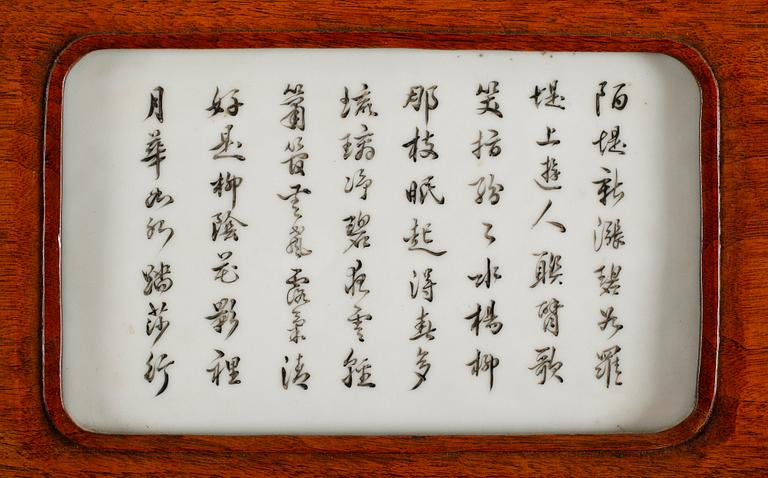 陌堤新漲碧如羅
堤上遊人聯臂歌
笑指紛々水楊柳
那枝眠起得春多
琉璃凈碧夜雲輕
簫管無聲露氣清
好是柳陰花影裡
月華如水踏莎行